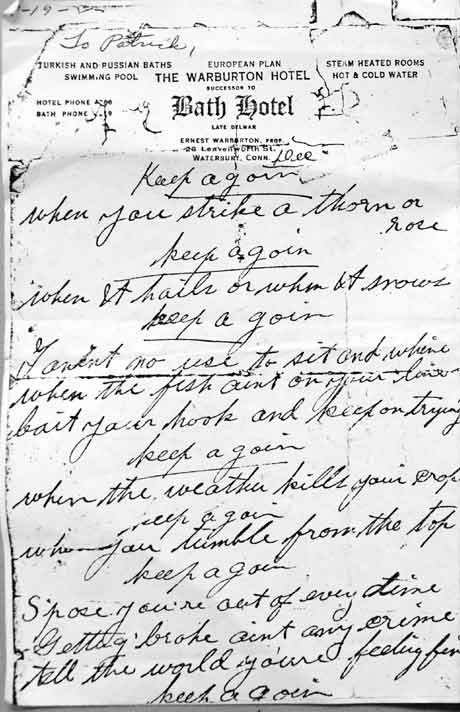 -19-
To Patrick,
TURKISH AND RUSSIAN BATHS EUROPEAN PLAN STEAM HEATED ROOMS
SWIMMING POOL THE WARBURTON HOTEL HOT & COLD WATER
SUCCESSOR TO
HOTEL PHONE Bath Hotel
BATH PHONE
LATE DELMAR
ERNEST WARBURTON, PROP.
26 LEAVENWORTH ST.
WATERBURY, CONN. Dec
Keep a goin
when you strike a thorn or
rose
keep a goin
when it hails or when it snows
keep a goin
Taint no use to sit and whine
when the fish aint on your line
bait your hook and keep on trying
keep a goin
when the weather kills your crop
keep a goin
when you tumble from the top
keep a goin
S'pose you're out of every dime
Getting broke aint any crime
tell the world you're feeling fin
keep a goin